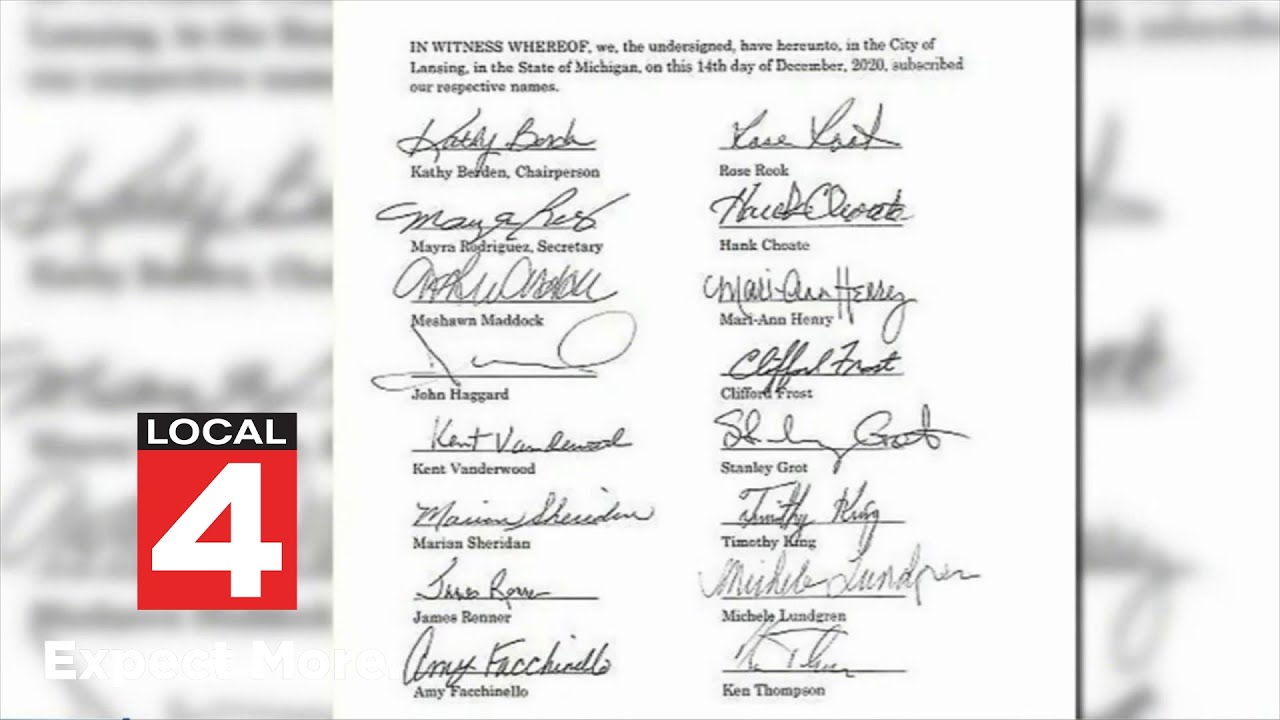 IN WITNESS WHEREOF, we, the undersigned, have hereunto, in the City of
Lansing, in the State of Michigan, on this 14th day of December, 2020, subscribed
our respective names.
Kathy Berden, Chairperson
Rose Rook
Mayra Rodriguez, Secretary
Hank Choate
Hank Choate
Meshawn Maddock
Mari-Ann Henry
Mari-Ann Henry
John Haggard
Clifford Frost
Clifford Frost
Kent Vanderwood
Kent Vanderwood
Stanley Grot
Marian Sheridan
Marian Sheridan
Timothy King
Timothy King
James Renner
Michele Lundgren
Michele Lundgren
Amy Facchinello
Amy Facchinello
Ken Thompson
LOCAL
4
Expect More.